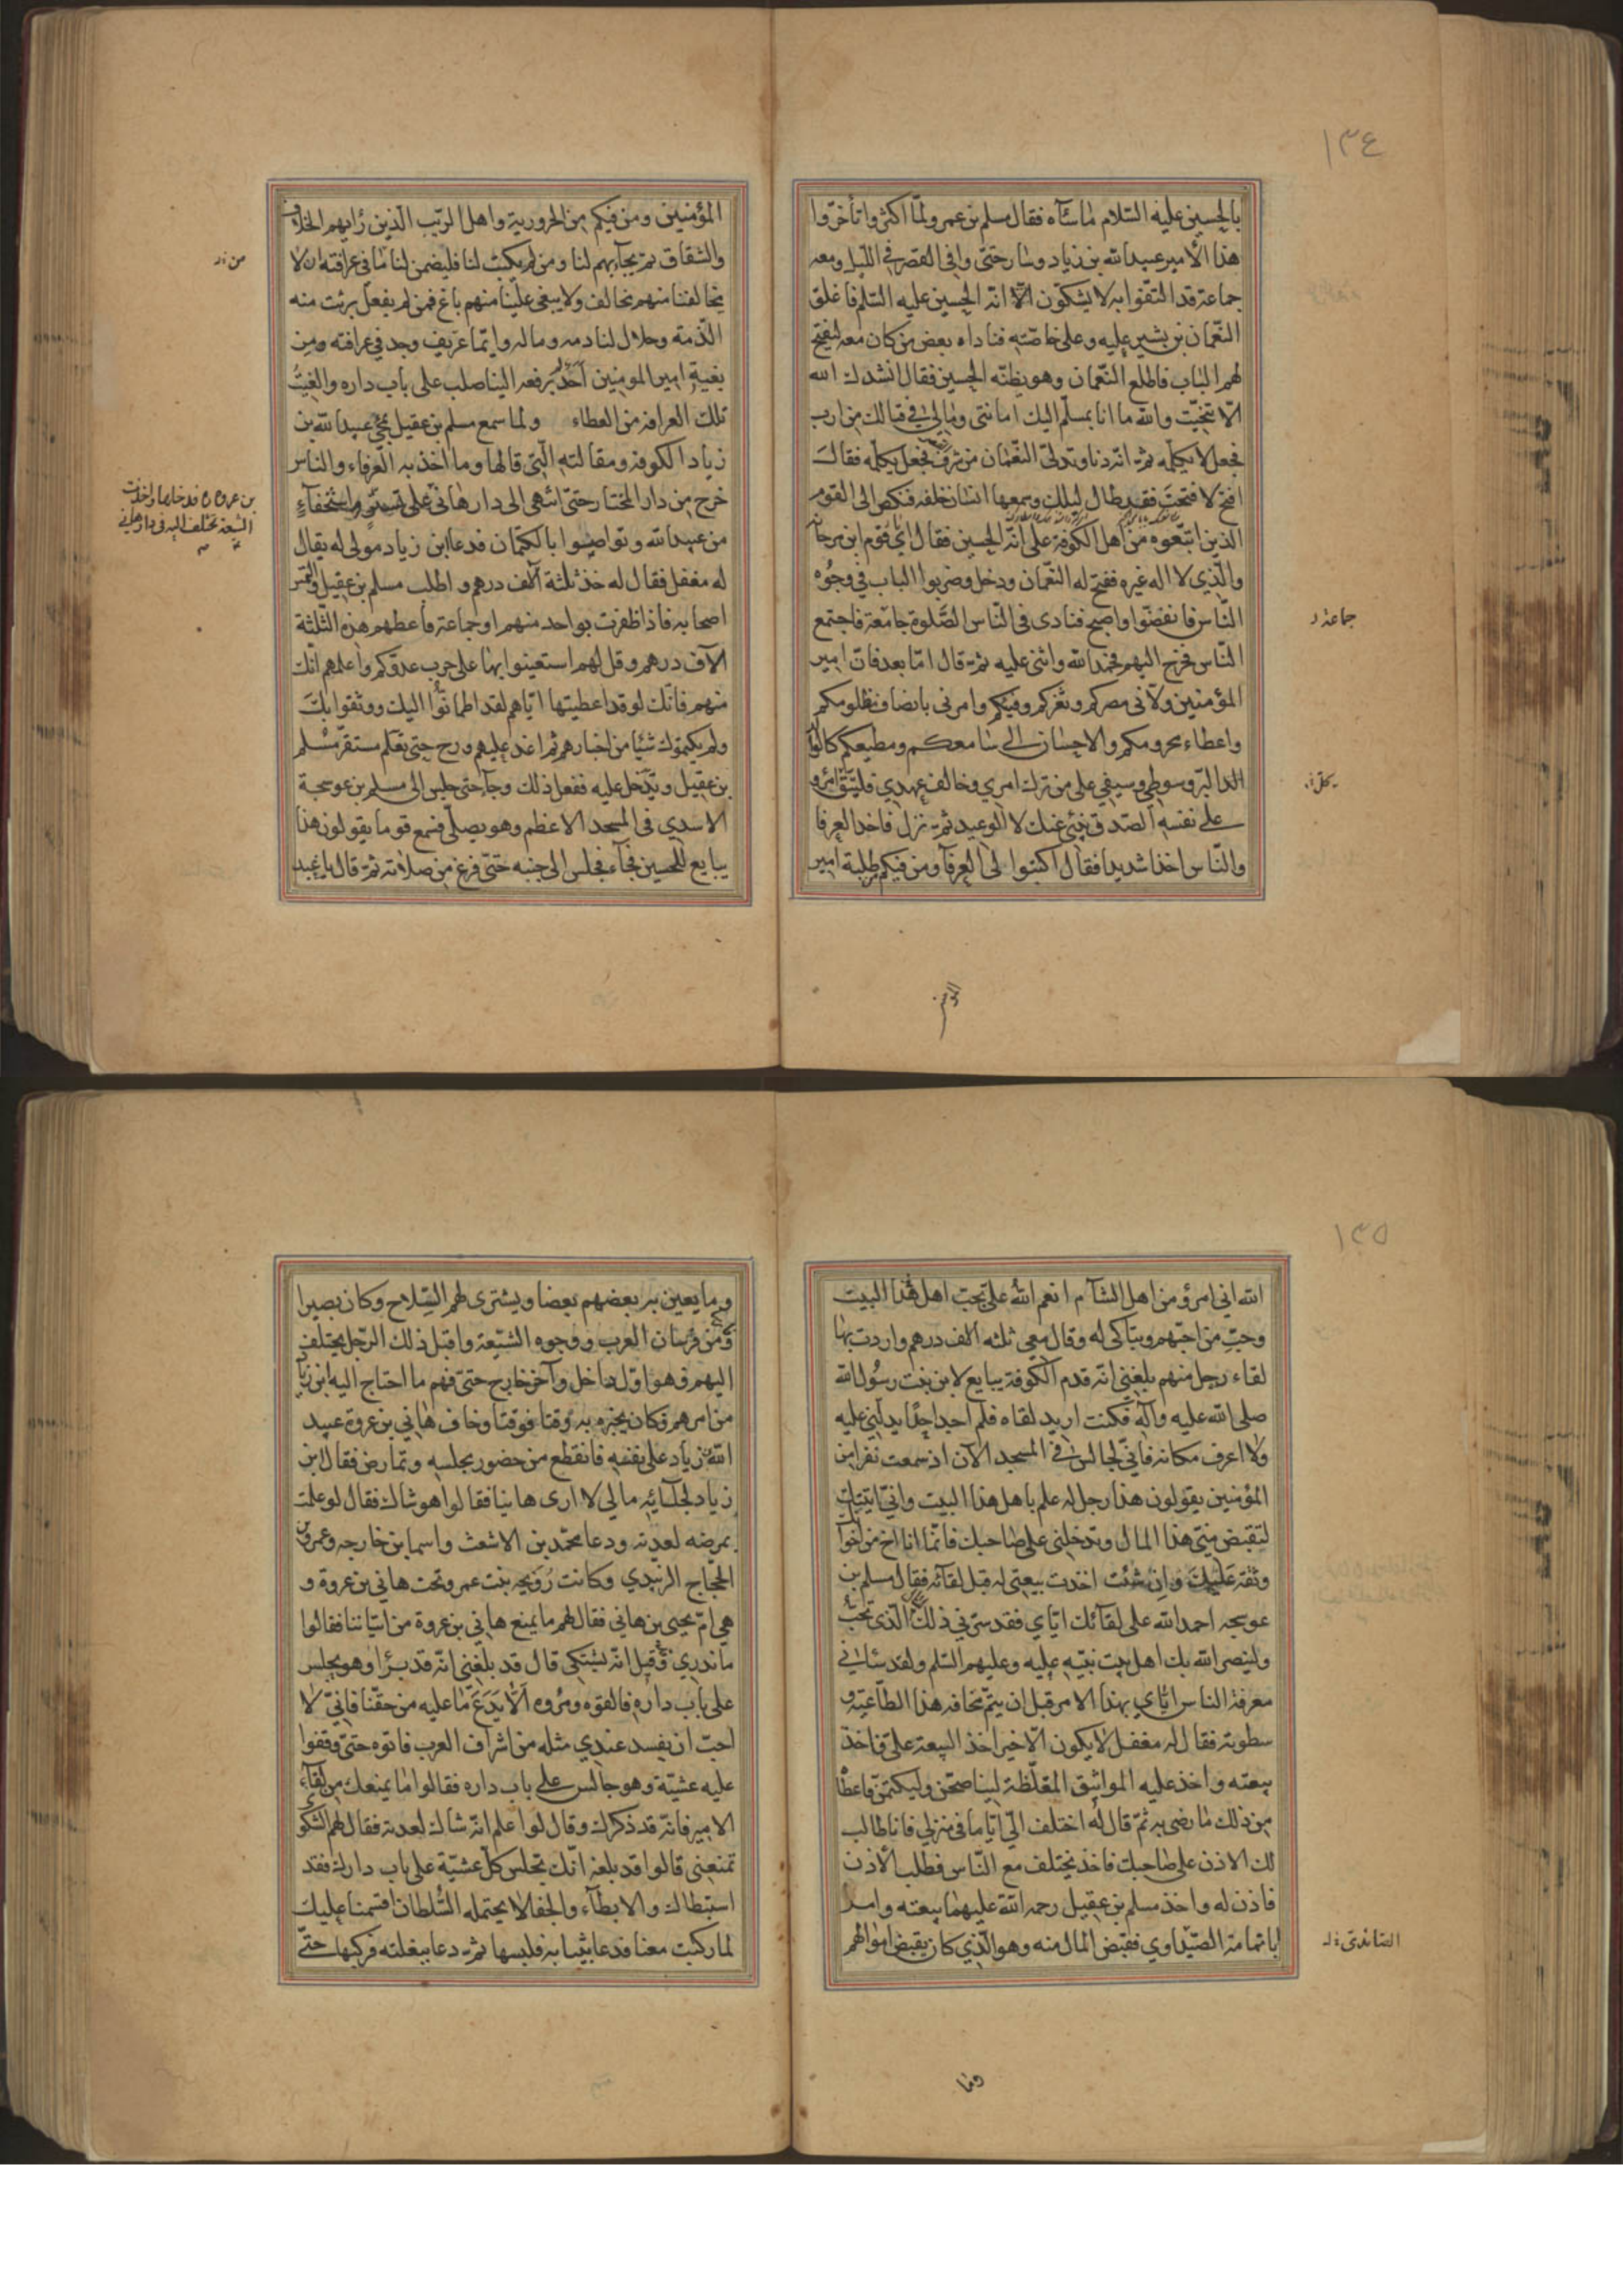 ١٣٤
بالحسين عليه السّلام لما سآءه فقال مسلم بن عمرو لمّا اكثروا تأخّروا
هذا الأمير عبيد الله بن زياد وسار حتّى وافى القصر في اللّيل ومعه
جماعة قد التفّوا به لا يشكّون الّا انّه الحسين عليه السّلم فاغلق
النّعمان بن بشير عليه وعلى خاصّته فناداه بعض من كان معه ليفتح
لهم الباب فاطلع النّعمان وهو يظنّه الحسين فقال انشدك الله
الّا تنحّيت والله ما انا بمسلّم اليك امانتي ومالي في قتالك من ارب
فجعل لا يكلّمه ثمّ انّه دنا وتدلّى النّعمان من شرف فجعل يكلّمه فقال
افتح لا فتحت فقد طال ليلك وسمعها انسان خلفه فنكص الى القوم
الذين اتبّعوه من اهل الكوفة على انّه الحسين فقال اي قوم ابن مرجانة
والّذي لا اله غيره ففتح له النّعمان ودخل وضربوا الباب في وجوه
النّاس فانفضّوا واصبح فنادى في النّاس الصّلوة جامعة فاجتمع
جماعة
النّاس فخرج اليهم فحمد الله واثنى عليه ثمّ قال امّا بعد فان امير
المؤمنين ولّاني مصركم وثغركم وفيئكم وامرني بانصاف مظلومكم
واعطاء محرومكم والاحسان الى سامعكم ومطيعكم كالوالد
البرّ وسوطي وسيفي على من ترك امري وخالف عهدي فليتّق امرؤ
على نفسه الصّدق ينبئ عنك لا الوعيد ثمّ نزل فاخذ العرفا
والنّاس اخذا شديدا فقال اكتبوا لي العرفآء ومن فيكم طلبة امير
المؤمنين
المؤمنين ومن فيكم من الحرورية واهل الريب الّذين رايهم الخلاف
والشقاق ثمّ يجآء بهم لنا ومن لم يكتب لنا فليضمن لنا ما في عرافته ان لا
يخالفنا منهم مخالف ولا يبغي علينا منهم باغ فمن لم يفعل برئت منه
الذّمة وحلال لنا دمه وماله وايّما عريف وجد في عرافته من
بغية امير المومنين احد لم يرفعه الينا صلب على باب داره والغيت
تلك العرافة من العطاء ولما سمع مسلم بن عقيل بمجئ عبيد الله بن
زياد الكوفة ومقالته التّي قالها وما اخذ به العرفاء والناس
خرج من دار المختار حتى انتهى الى دار هانئ على تستّر واستخفآء
بن عروة فدخلها واخذت
الشيعة تختلف اليه في دار هاني
من عبيد الله وتواصوا بالكتمان فدعا ابن زياد مولى له يقال
له مغفل فقال له خذ ثلثة آلف درهم واطلب مسلم بن عقيل والتمس
اصحابه فاذا ظفرت بواحد منهم او جماعة فاعطهم هذه الثّلثة
الآف درهم وقل لهم استعينوا بها على حرب عدوّكم واعلمهم انّك
منهم فانّك لو قد اعطيتها ايّاهم لقد اطمانّوا اليك ووثقوا بك
ولم يكتموك شيئا من اخبارهم ثم اغد عليهم ورح حتى تعلم مستقرّ مسلم
بن عقيل وتدخل عليه ففعل ذلك وجآء حتى جلس الى مسلم بن عوسجة
الاسدي في المسجد الاعظم وهو يصلي فسمع قوما يقولون هذا
يبايع للحسين فجآء فجلس الى جنبه حتى فرغ من صلاته ثمّ قال يا عبد
١٣٥
الله اني امرؤ من اهل الشآم انعم الله علىّ بحبّ اهل هذا البيت
وحبّ من احبّهم وتباكى له وقال معي ثلثه الف درهم واردت بها
لقاء رجل منهم بلغني انّه قدم الكوفة يبايع لابن بنت رسول الله
صلى الله عليه وآله فكنت اريد لقاه فلم اجد احدا يدلّني عليه
ولا اعرف مكانه فانّي لجالس في المسجد الآن اذ سمعت نفرا من
المؤمنين يقولون هذا رجل له علم باهل هذا البيت وانّي اتيتك
لتقبض منّي هذا المال وتدخلني على صاحبك فانّما انا اخ من اخوانك
وثقة عليك وان شئت اخذت بيعتي له قبل لقآئه فقال مسلم بن
عوسجه احمد الله على لقآئك ايّاي فقد سرّني ذلك الّذي تحبّ
ولينصر الله بك اهل بيت نبيّه عليه وعليهم السّلم ولقد سآءني
معرفة الناس ايّاي بهذا الامر قبل ان يتمّ مخافة هذا الطّاغية و
سطوته فقال له مغفل لا يكون الّا خيرا خذ البيعة علىّ فاخذ
بيعته واخذ عليه المواثيق المغلّظة ليناصحنّ وليكتمنّ فاعطاه
من ذلك ما رضى به ثمّ قال له اختلف الىّ ايّاما في منزلي فانا طالب
لك الاذن على صاحبك فاخذ يختلف مع النّاس فطلب الأذن
فاذن له واخذ مسلم بن عقيل رحمة الله عليهما بيعته وامر
ابا ثمامة الصّيداوي فقبض المال منه وهو الّذي كان يقبض اموالهم
الصّائدي
وما
وما يعين به بعضهم بعضا ويشترى لهم السّلاح وكان بصيرا
ومن فرسان العرب ووجوه الشّيعة واقبل ذلك الرّجل يختلف
اليهم فهو اوّل داخل وآخر خارج حتى فهم ما احتاج اليه ابن زياد
من امرهم فكان يخبره به وقتا فوقتا وخاف هاني بن عروة عبيد
الله بن زياد على نفسه فانقطع من حضور مجلسه وتمارض فقال ابن
زياد لجلسآئه مالي لا ارى هانيا فقالوا هو شاك فقال لو علمت
بمرضه لعدته ودعا محمّد بن الاشعث واسما بن خارجه وعمرو بن
الحجّاج الزبيدي وكانت رويحه بنت عمرو تحت هاني بن عروة و
هي امّ يحيى بن هاني فقال لهم ما يمنع هاني بن عروة من اتياننا فقالوا
ما ندري وقد قيل انّه يشتكي قال قد بلغني انّه قد برأ وهو يجلس
على باب داره فالقوه ومروه الّا يدع ما عليه من حقّنا فانّي لا
احبّ ان يفسد عندي مثله من اشراف العرب فاتوه حتى وقفوا
عليه عشيّة وهو جالس على باب داره فقالوا ما يمنعك من لقآء
الامير فانّه قد ذكرك وقال لو اعلم انّه شاك لعدته فقال لهم الشّكوى
تمنعني قالوا قد بلغه انّك تجلس كلّ عشيّة على باب دارك فقد
استبطاك والابطآء والجفا لا يحتمله السّلطان اقسمنا عليك
لما ركبت معنا فدعا بثيابه فلبسها ثمّ دعا ببغلته فركبها حتى